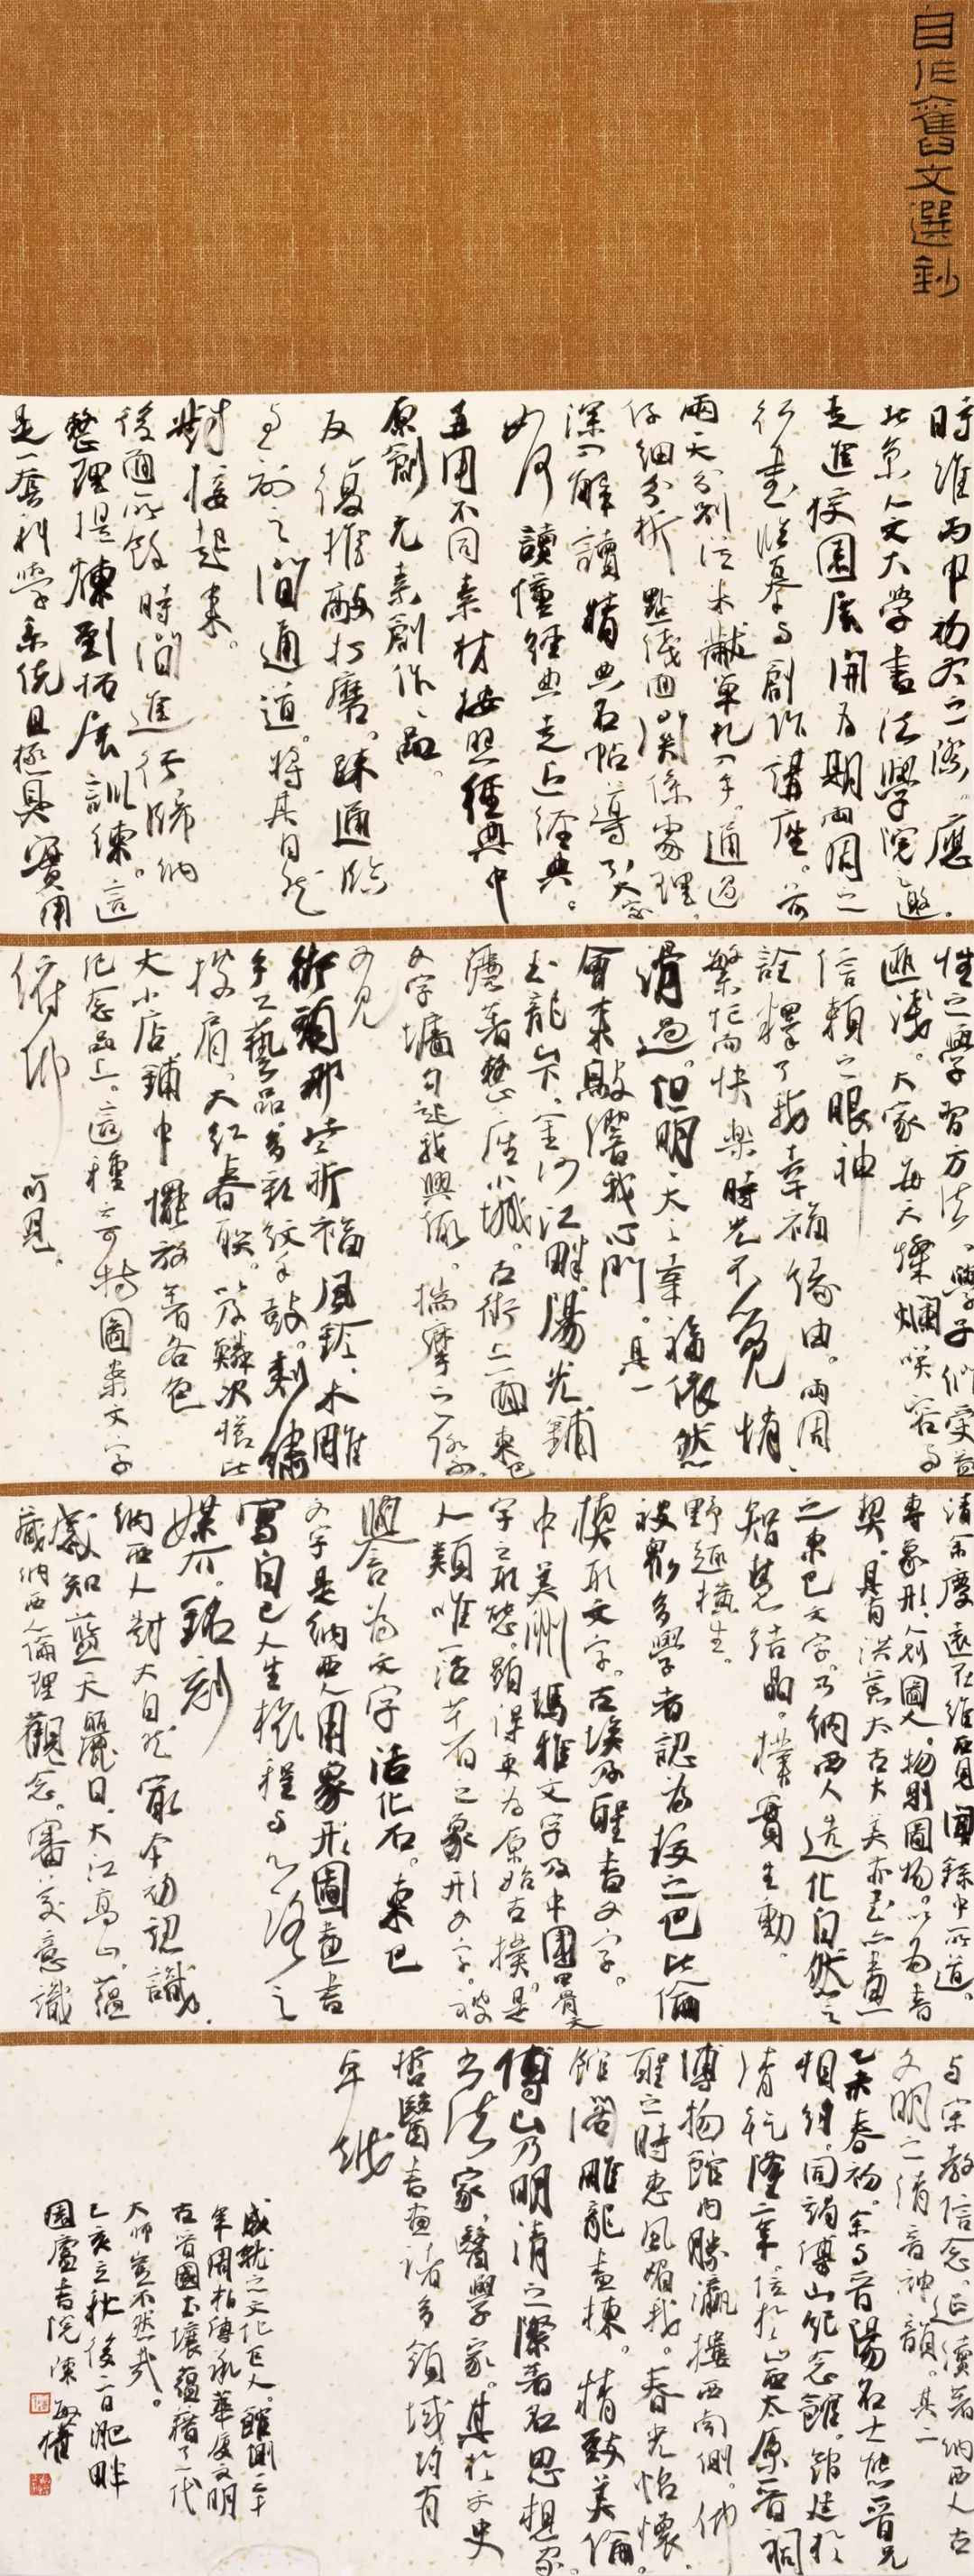 自作舊文選鈔
時維丙申初冬之際。應
北京人文大学書法學院邀。
走進校園展開為期兩周之
行書臨摹与創作講座。前
兩天分别從米黻草札入手。通過
仔細分析點綫面関係處理。
深入解讀精典名帖導引大家
如何讀懂經典走近經典。
再用不同素材按照經典中
原創元素創作作品。
反復推敲打磨。疎通臨
与創之間通道。將其自然
對接起来。
後面所餘時間進行歸納
整理提煉到拓展訓練。這
是一套科學系統且極具實用
性之學習方法。學子們受益
匪淺。大家每天燦爛咲容与
信賴之眼神
詮釋了我幸福緣由。兩周
繁忙而快樂時光不覺悄
滑過。但明天之幸福依然
會来敲響我心門。其一
玉龍山下。金沙江畔。陽光鋪
灑著整座小城。古街上面東巴
文字墻勾起我興緻。揣摩之餘。
又見
街頭那些祈福風鈴。木雕
手工藝品。多彩紋手鼓。刺繡
披肩。大红春联。以及鱗次櫛比
大小店鋪中擺放著各色
纪念品上。這種奇特圖案文字
俯仰
可見。
清余慶遠在維西見聞錄中所道。
專象形、人則圖人。物則圖物。以為書
契。具有洪荒太古大美亦書亦畫
之東巴文字乃納西人造化自然之
智慧结晶。樸實生動。
野趣橫生。
被衆多學者認為較之巴比倫
楔形文字。古埃及聖書文字。
中美洲瑪雅文字及中國甲骨文
字之形態。顯得更為原始古樸。是
人類唯一活著之象形文字。被
譽為文字活化石。東巴
文字是納西人用象形圖畫書
寫自己人生旅程与心路之
媒介。銘刻
納西人對大自然最本初認識。
感知藍天麗日。大江高山。蘊
藏納西人倫理觀念。審美意識
与宗教信念。延續著納西人古
文明之清音神韻。其二
乙未春初。余与晋陽名士熊晋兄
相约同訪傅山纪念館。館建於
清乾隆年。位於山西太原晋祠
博物館内勝瀛樓西南側。仲
醒之時惠風媚我。春光怡懷。
館閣雕龍畫棟。精致美倫。
傅山乃明清之際著名思想家
書法家。醫學家。其於文史
哲醫書畫諸多領域均有
年餞
成就之文化巨人。館側三千
年周柏傳承華夏文明
古晋國土壤蘊藉了一代
大師豈不然哉。
己亥立秋後二日淝畔
園廬書院陳